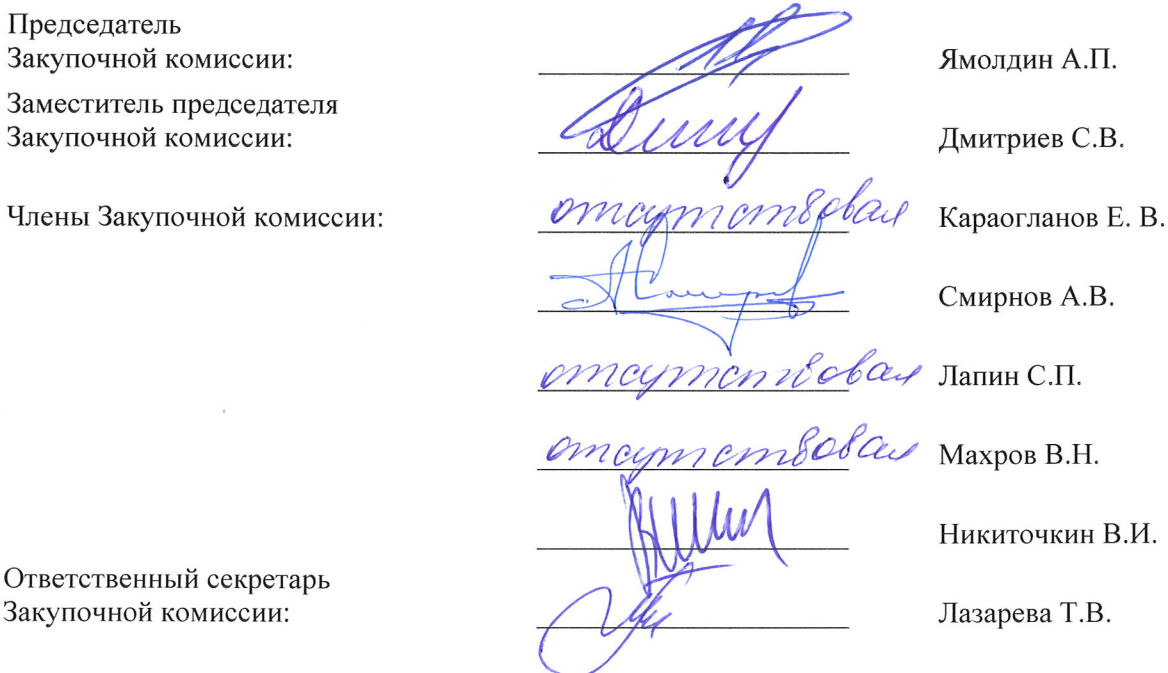 Председатель
Закупочной комиссии: Ямолдин А.П.
Заместитель председателя
Закупочной комиссии: Дмитриев С.В.
Члены Закупочной комиссии: отсутствовал Караогланов Е. В.
Смирнов А.В.
отсутствовал Лапин С.П.
отсутствовал Махров В.Н.
Никиточкин В.И.
Ответственный секретарь
Закупочной комиссии: Лазарева Т.В.